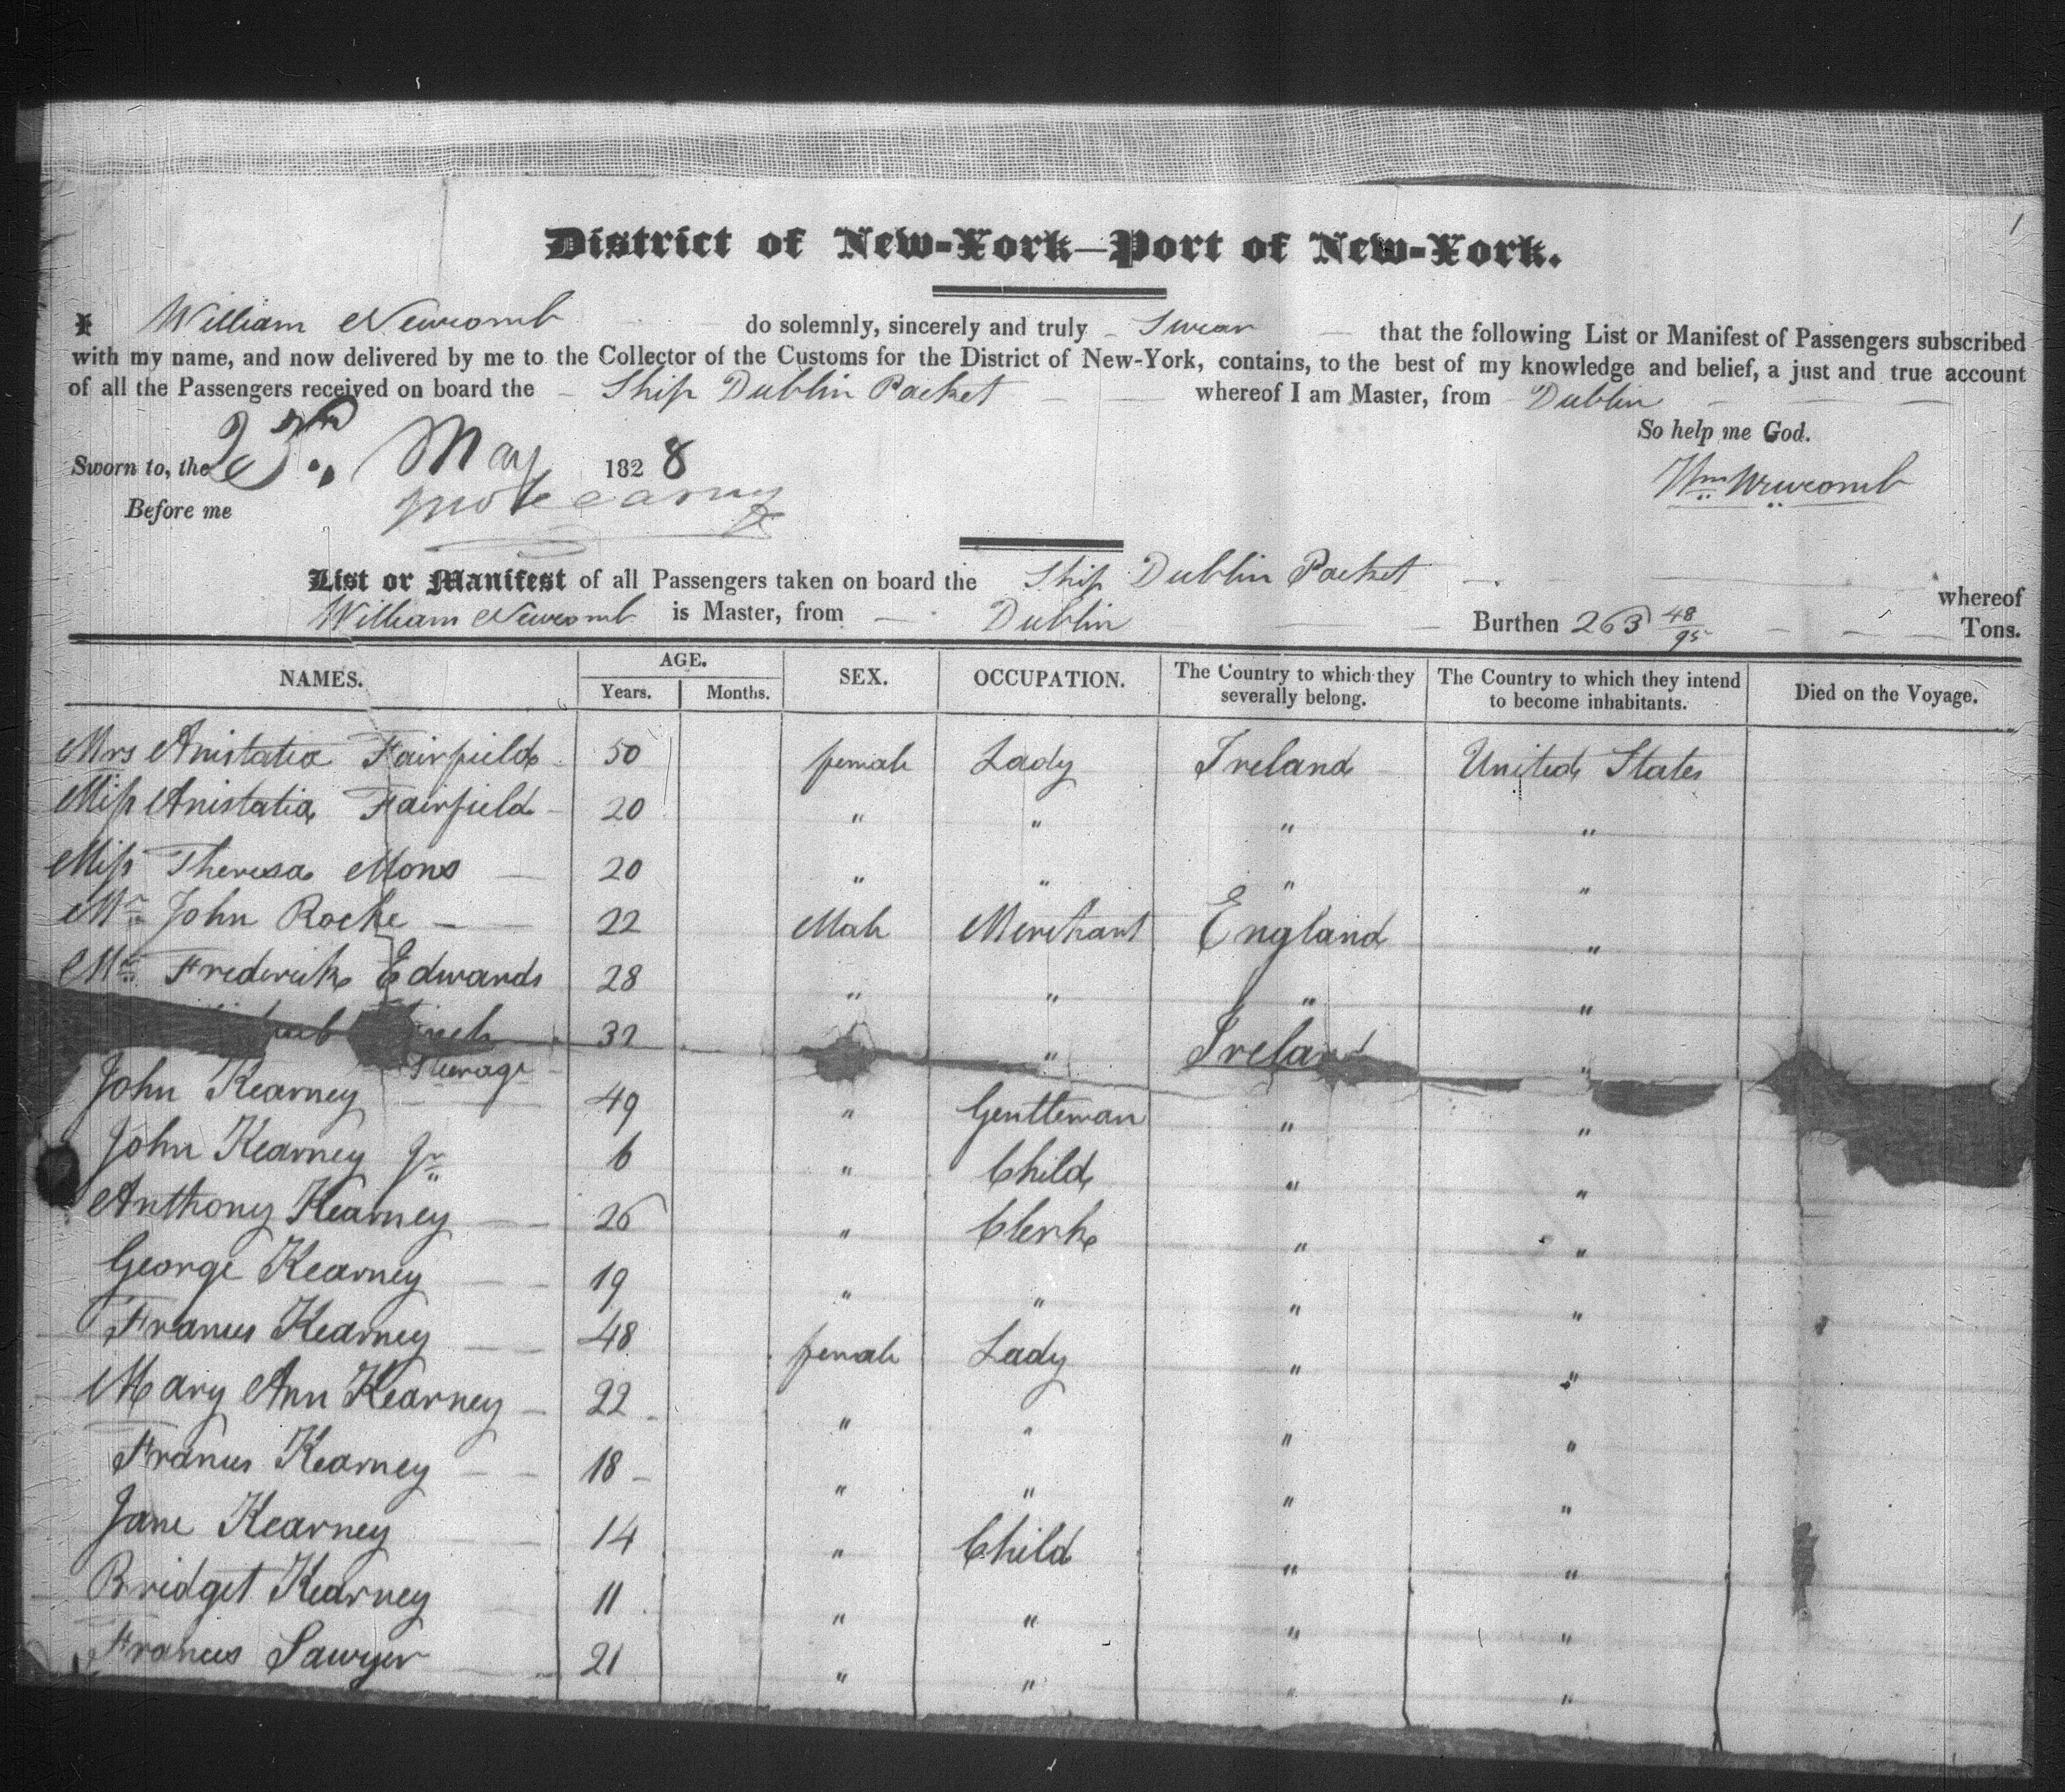 1
District of New-York—Port of New-York.
I William Newcomb do solemnly, sincerely and truly Swear that the following List or Manifest of Passengers subscribed
with my name, and now delivered by me to the Collector of the Customs for the District of New-York, contains, to the best of my knowledge and belief, a just and true account
of all the Passengers received on board the Ship Dublin Packet whereof I am Master, from Dublin
So help me God.
Sworn to, the May 1828
Wm Newcomb
Before me
List or Manifest of all Passengers taken on board the Ship Dublin Packet whereof
William Newcomb is Master, from Dublin Burthen 263 48/95 Tons.
NAMES. AGE. Years. Months. SEX. OCCUPATION. The Country to which they severally belong. The Country to which they intend to become inhabitants. Died on the Voyage.
Mrs Anistatia Fairfield 50 female Lady Ireland United States
Miss Anistatia Fairfield 20 " " " "
Miss Theresa Mons 20 " " " "
Mr John Roche 22 Male Merchant England "
Mr Frederick Edwards 28 " " " "
32 " Ireland "
Steerage
John Kearney 49 " Gentleman " "
John Kearney Jr 6 " Child " "
Anthony Kearney 26 " Clerk " "
George Kearney 19 " " " "
Frances Kearney 48 female Lady " "
Mary Ann Kearney 22 " " " "
Frances Kearney 18 " " " "
Jane Kearney 14 " Child " "
Bridget Kearney 11 " " " "
Frances Sawyer 21 " " " "